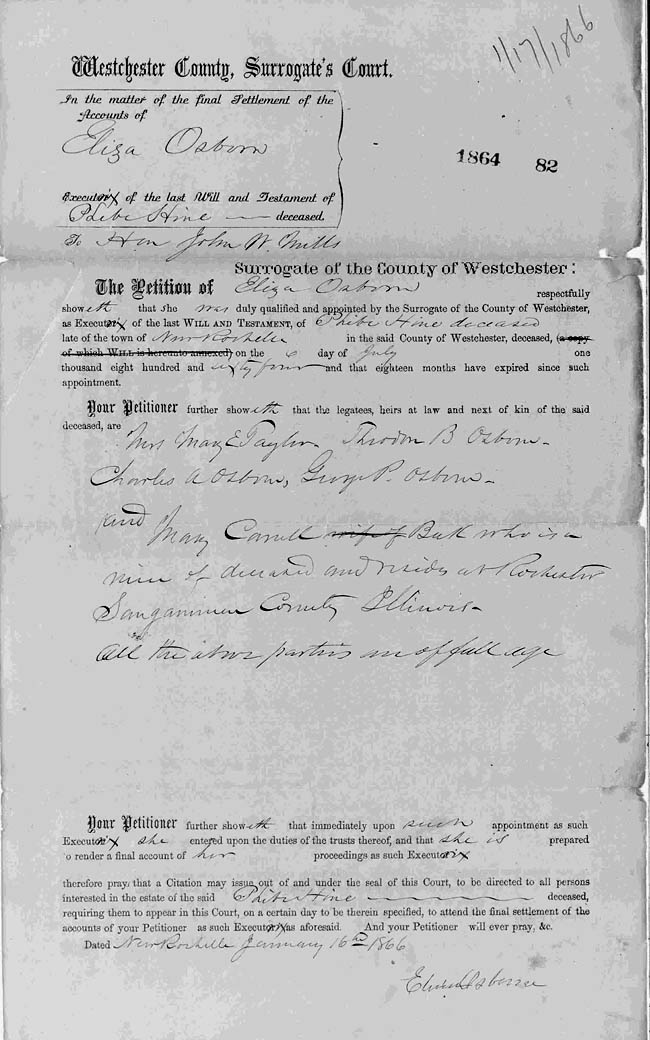 1/17/1866
Westchester County, Surrogate's Court.
In the matter of the final Settlement of the
Accounts of
Eliza Osborn
1864 82
Executorix of the last Will and Testament of
Phebe Hine — deceased.
To Hon John W. Mills
Surrogate of the County of Westchester:
The Petition of Eliza Osborn respectfully
showeth that she was duly qualified and appointed by the Surrogate of the County of Westchester,
as Executorix of the last WILL AND TESTAMENT, of Phebe Hine deceased
late of the town of New Rochelle in the said County of Westchester, deceased, (a copy
of which WILL is hereunto annexed) on the 6 day of July one
thousand eight hundred and sixty four and that eighteen months have expired since such
appointment.
Your Petitioner further showeth that the legatees, heirs at law and next of kin of the said
deceased, are
Mrs Mary E Taylor Theodore B Osborn -
Charles A Osborn, George P. Osborn -
and
Mary Carroll wife of Bell who is a
niece of deceased and resides at Rochester
Sangammen County Illinois -
All the above parties are of full age
Your Petitioner further showeth that immediately upon such appointment as such
Executorix she entered upon the duties of the trusts thereof, and that she is prepared
to render a final account of her proceedings as such Executorix
therefore pray, that a Citation may issue out of and under the seal of this Court, to be directed to all persons
interested in the estate of the said Phebe Hine — deceased,
requiring them to appear in this Court, on a certain day to be therein specified, to attend the final settlement of the
accounts of your Petitioner as such Executorix as aforesaid. And your Petitioner will ever pray, &c.
Dated New Rochelle January 16th 1866
Eliza Osborne